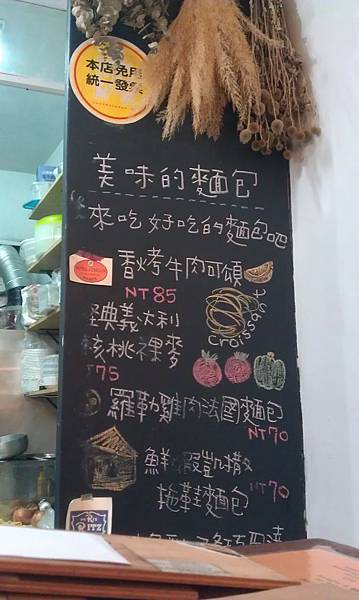 本店免用
統一發票
美味的麵包
來吃好吃的麵包吧
香烤牛肉可頌
NT85
croissant
經典義大利
核桃裸麥
75
羅勒雞肉法國麵包
NT70
鮮蝦凱撒
拖鞋麵包
NT70
RITZ